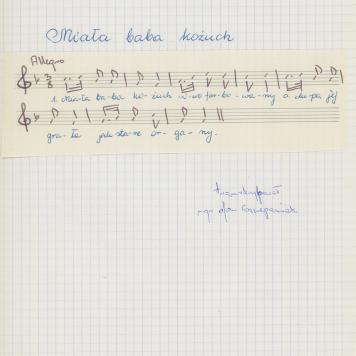 Miała baba kożuch
Allegro
1. Mia-ła ba-ba ko-żuch i-wo far-bo-wa-ny a du-pa jej
gra-ła jak sta-re or-ga-ny.
transkrybował
mgr